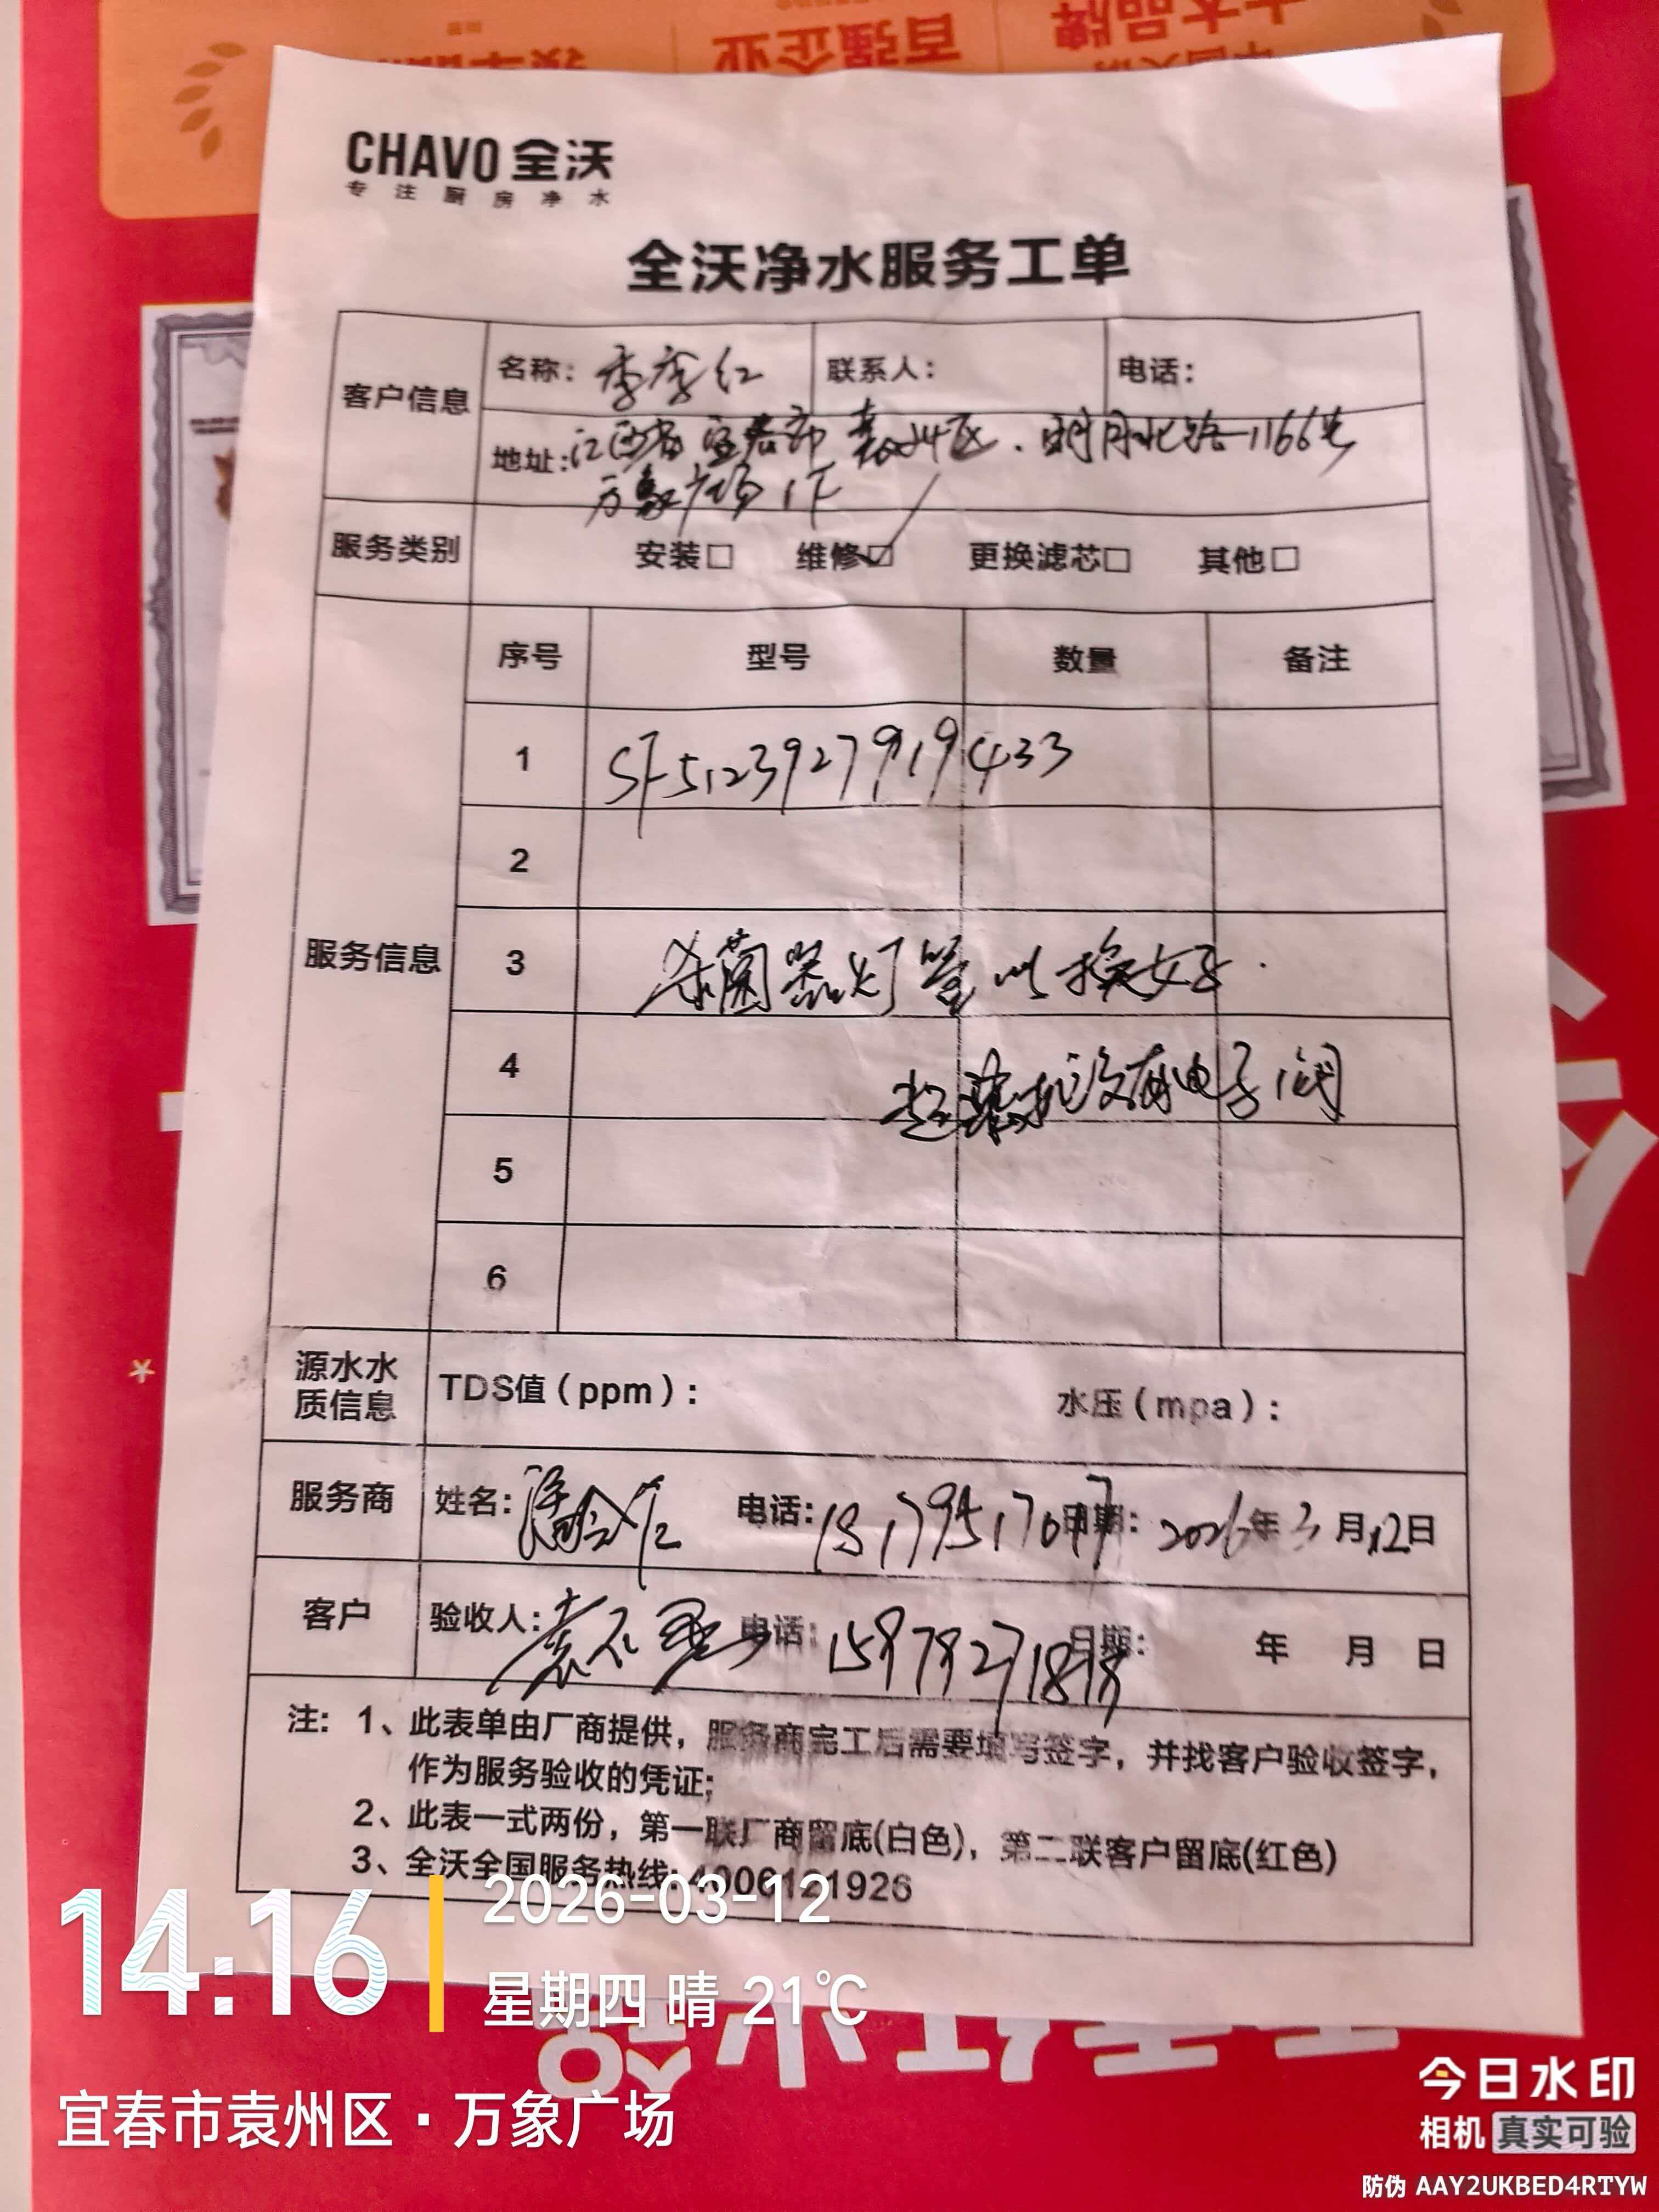 百强企业
CHAVO 全沃
专注厨房净水
全沃净水服务工单
客户信息
名称: 季季红
联系人:
电话:
地址:江西省宜春市袁州区.明月北路1166号
万象广场1F
服务类别
安装□ 维修☑ 更换滤芯□ 其他□
服务信息
序号 型号 数量 备注
1 SF5123927919433
2
3 杀菌器灯管以换好.
4 机没有电子阀
5
6
源水水质信息
TDS值(ppm): 水压(mpa):
服务商 姓名:潘 电话:18179517077 日期: 2026年3月12日
客户 验收人:袁 电话: 日期: 年 月 日
注: 1、此表单由厂商提供,服务商完工后需要填写签字,并找客户验收签字,
作为服务验收的凭证;
2、此表一式两份,第一联厂商留底(白色),第二联客户留底(红色)
3、全沃全国服务热线:4006121926
14:16
2026-03-12
星期四 晴 21℃
宜春市袁州区·万象广场
今日水印
相机 真实可验
防伪 AAY2UKBED4RTYW